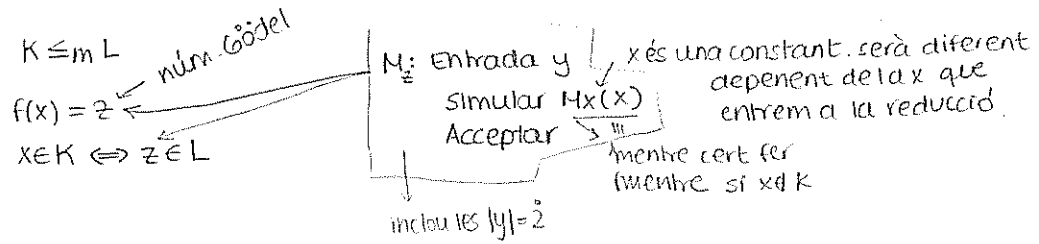 K ≤m L
núm. Gödel
f(x) = z
x∈K ⇔ z∈L
Mz: Entrada y
simular Mx(x)
Acceptar
x és una constant. serà diferent
depenent de la x que
entrem a la reducció.
mentre cert fer
fmentre si x∉K
inclou les |y|=2